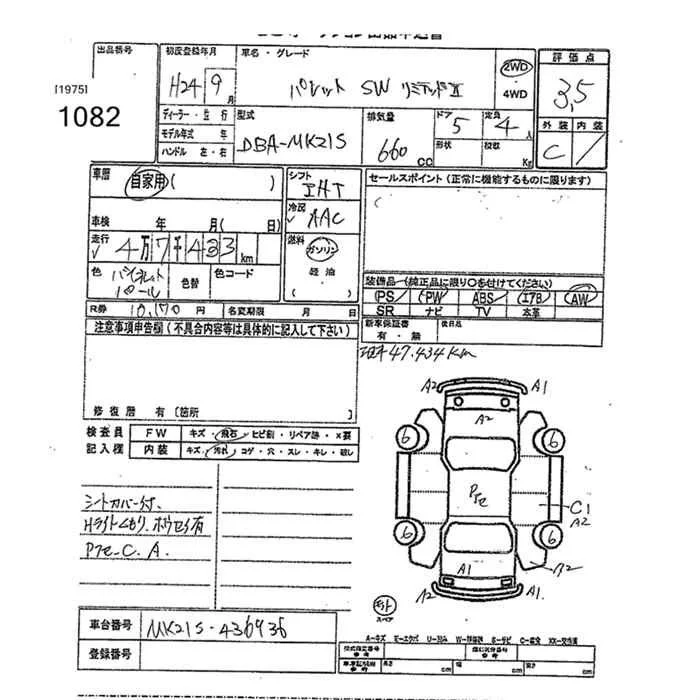 出品番号
[1975]
1082
初度登録年月
H24 9月
車名・グレード
パレット SW リミテッドⅡ
2WD
4WD
評価点
3,5
外装 内装
C /
ディーラー・並行
モデル年式 年
ハンドル 左・右
型式
DBA-MK21S
排気量
660 CC
ドア 5
形状
定員 4人
積数 Kg
車歴
自家用( )
車検 年 月( 日)
走行 4万7千433km
シフト
IAT
冷房
AAC
燃料
ガソリン
軽油
セールスポイント(正常に機能するものに限ります)
色
パール
色替
色コード
装備品(純正品に限り〇を付けてください)
PS PW ABS エアB AW
SR ナビ TV 本革
R券 10,170円 名変期限 月 日
新車保証書 有・無
後日品
注意事項申告欄(不具合内容等は具体的に記入して下さい)
47.434km
修復歴 有〔箇所
検査員
記入欄
FW キズ・飛石・ヒビ割・リペア跡・X要
内装 キズ・汚れ・コゲ・穴・スレ・キレ・破レ
シートカバー付.
Hライトくもり.ホウセイ有
Pアセ.C.A.
A2 A1
A2
6 6
Pアセ
C1
A2
6 6
A1
B2
A2 A1
スペア
車台番号
MK21S-436936
登録番号
A-キズ E-エクボ U-凹み W-修理跡 S-サビ C-腐食 XX-交換済
長さ cm 幅 cm 高さ cm